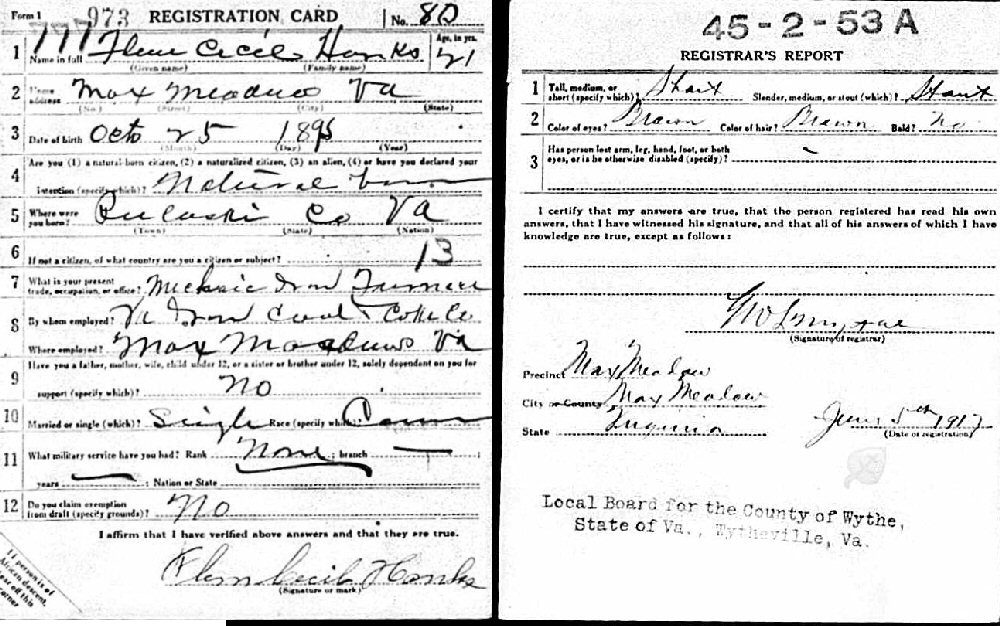 Form 1 973 REGISTRATION CARD No. 80
777
1 Flem Cecil Hanks Age, in yrs. 21
Name in full (Given name) (Family name)
2 Home address Max Meadows Va
(No.) (Street) (City) (State)
3 Date of birth Octo 25 1895
(Month) (Day) (Year)
Are you (1) a natural-born citizen, (2) a naturalized citizen, (3) an alien, (4) or have you declared your
4 intention (specify which)? Natural born
5 Where were you born? Pulaski Co Va
(Town) (State) (Nation)
13
6 If not a citizen, of what country are you a citizen or subject?
7 What is your present trade, occupation, or office? Iron Furnace
8 By whom employed? Va Iron Coal & Coke Co
Where employed? Max Meadows Va
Have you a father, mother, wife, child under 12, or a sister or brother under 12, solely dependent on you for
9 support (specify which)? No
10 Married or single (which)? Single Race (specify which)?
11 What military service have you had? Rank None ; branch —
years — ; Nation or State
12 Do you claim exemption from draft (specify grounds)? No
I affirm that I have verified above answers and that they are true.
Flem Cecil Hanks
(Signature or mark)
45-2-53 A
REGISTRAR'S REPORT
1 Tall, medium, or short (specify which)? Short Slender, medium, or stout (which)? Stout
2 Color of eyes? Brown Color of hair? Brown Bald? No
3 Has person lost arm, leg, hand, foot, or both eyes, or is he otherwise disabled (specify)? -
I certify that my answers are true, that the person registered has read his own
answers, that I have witnessed his signature, and that all of his answers of which I have
knowledge are true, except as follows:
(Signature of registrar)
Precinct Max Meadow
City or County Max Meadow
State Virginia June 5th 1917
(Date of registration)
Local Board for the County of Wythe,
State of Va., Wytheville, Va.